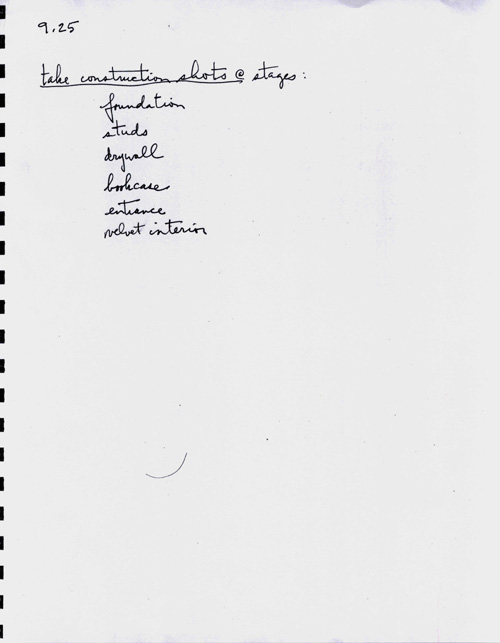 9.25
take construction shots @ stages:
foundation
studs
drywall
bookcase
entrance
velvet interior